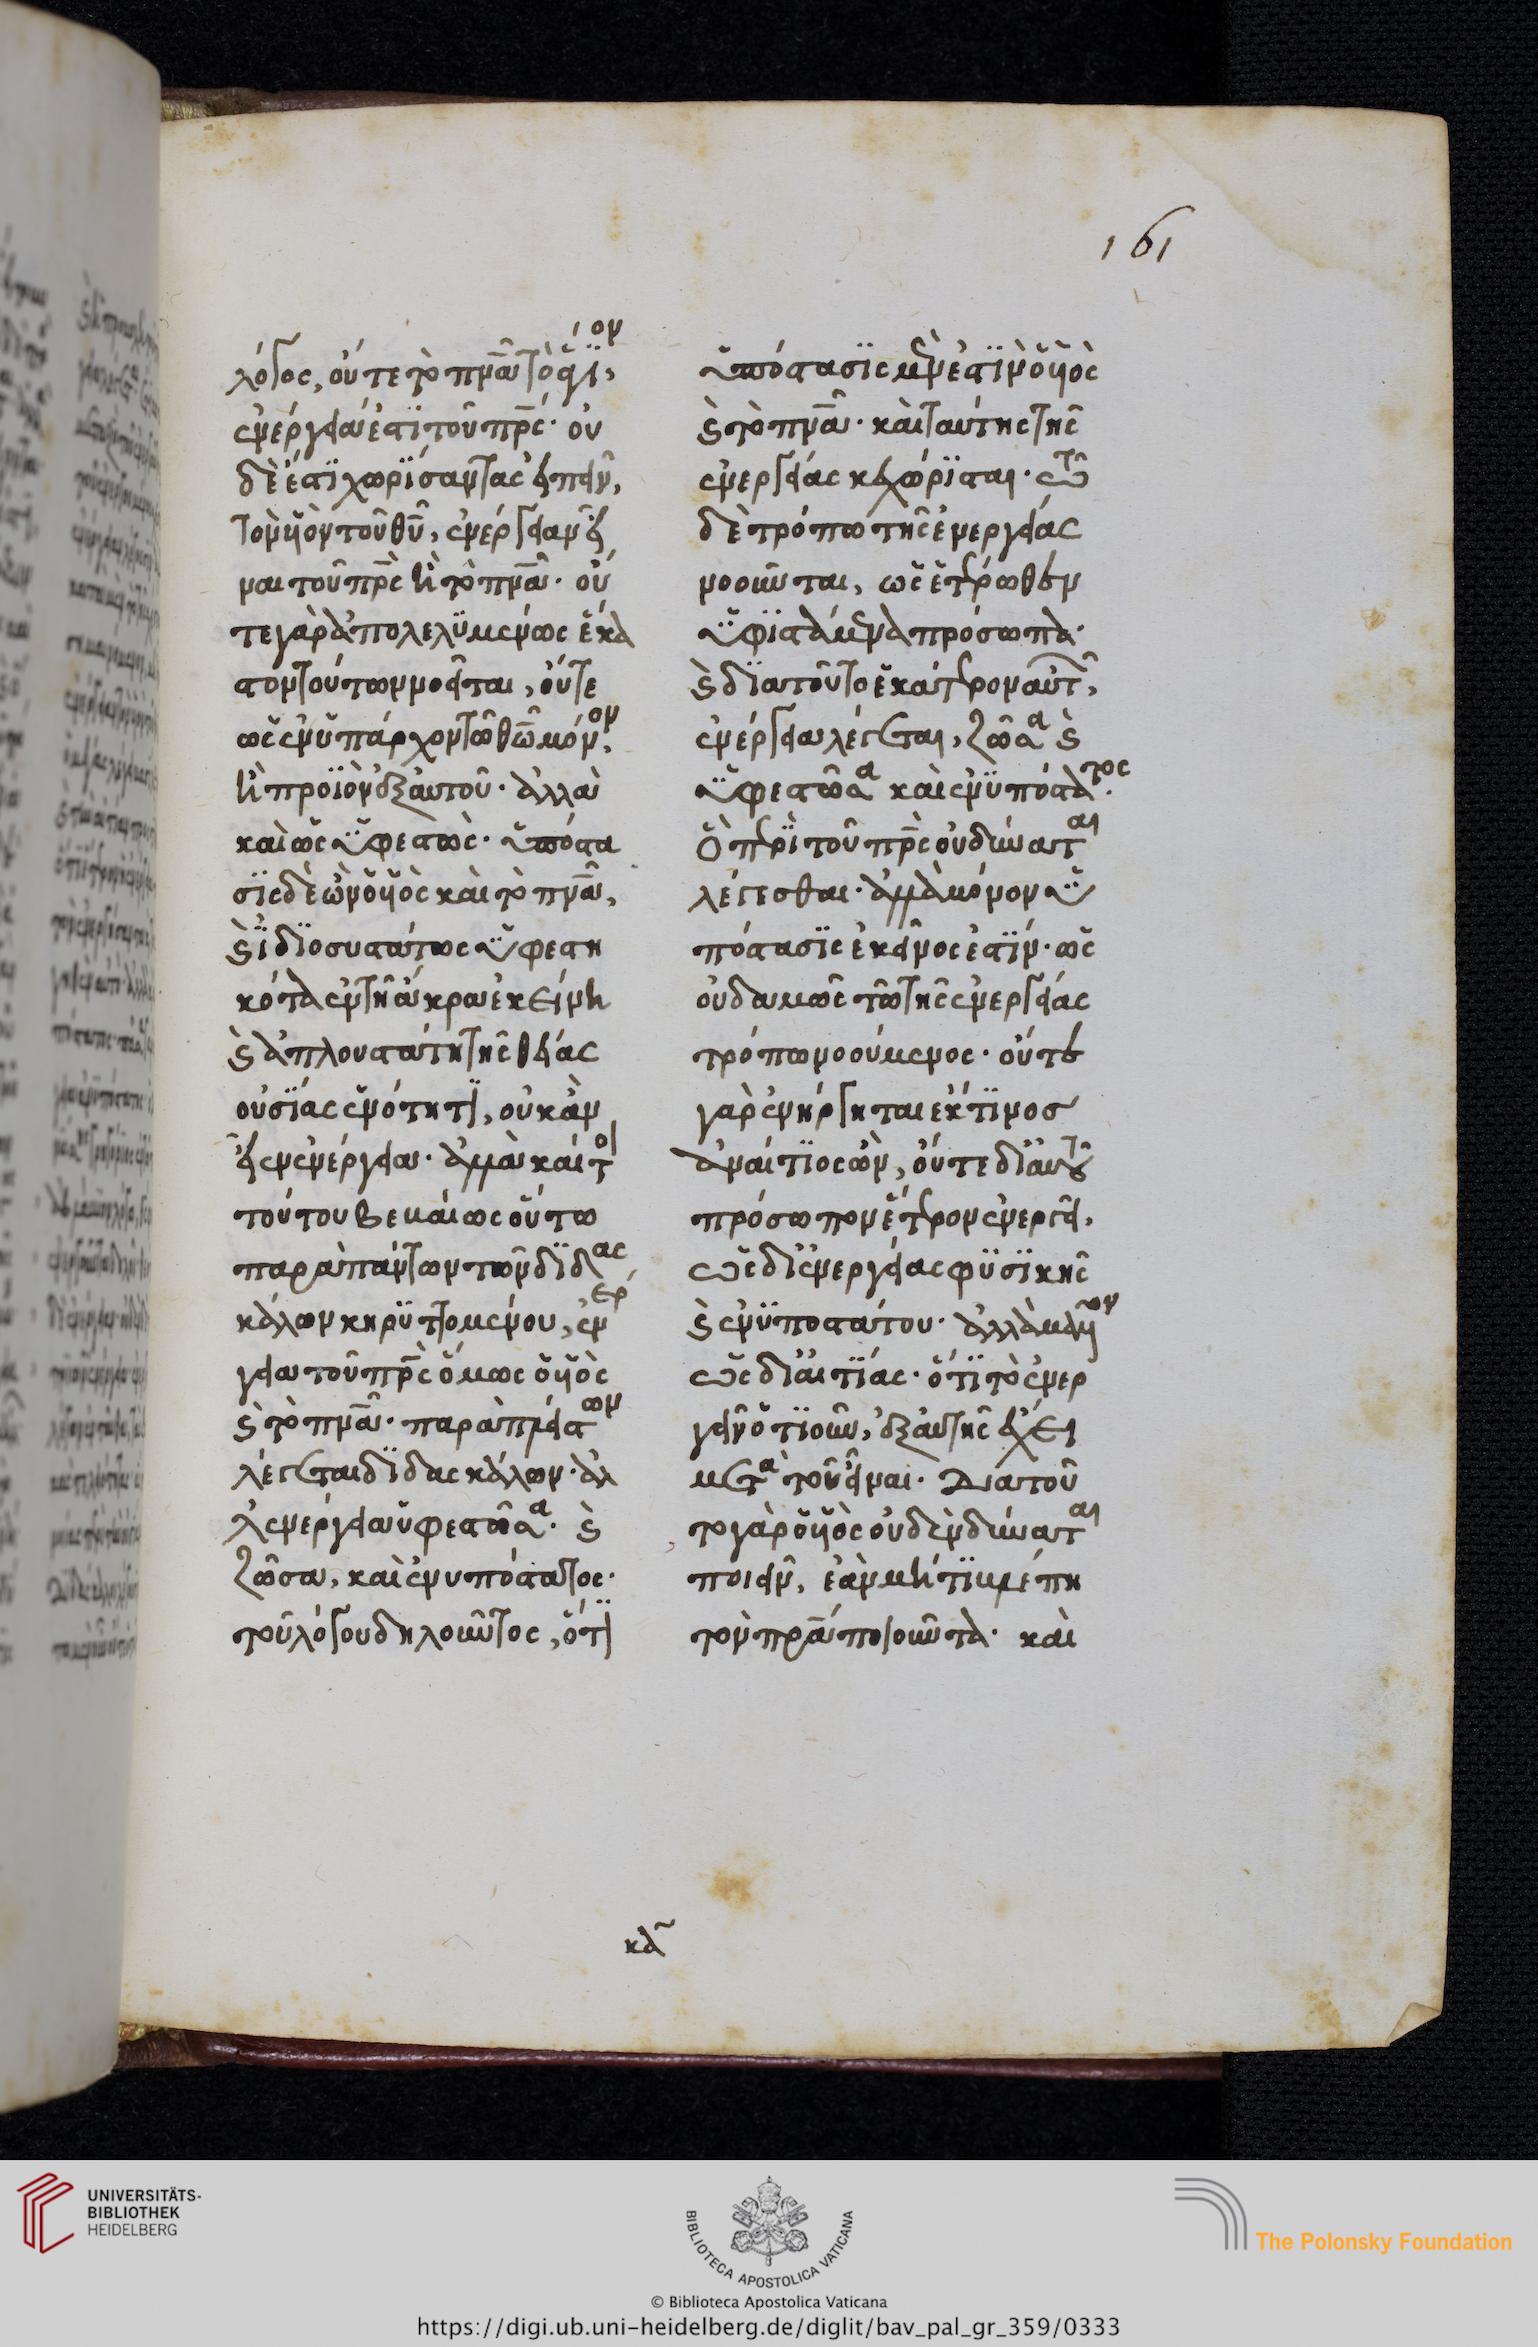 161
λόγος, οὔτε τὸ πνᾶ τὸ ἅγιον,
ἐνέργεια ἐστὶ τοῦ πρς· οὐ
δὲ ἐστὶ χωρίσαντας εἰπεῖν,
τὸν υἱὸν τοῦ θυ, ἐνέργειαν εἶ
ναι τοῦ πρς ἢ τὸ πνᾶ· οὔ
τε γὰρ ἀπολελυμένως ἕκα
στον τούτων νοεῖται, οὔτε
ὡς ἐνυπάρχον τῶ θῶ μόνον,
ἢ προϊὸν ἐξ αὐτοῦ· ἀλλὰ
καὶ ὡς ὑφεστώς· ὑπόστα
σις δὲ ὢν ὁ υἱὸς καὶ τὸ πνᾶ,
καὶ ἰδιοσυστάτως ὑφεστη
κότα ἐν τῆ ἄκρα ἐκείνη
καὶ ἁπλουστάτη τῆς θείας
οὐσίας ἑνότητι, οὐκ ἂν
εἶεν ἐνέργεια· ἀλλὰ καίτοι
τούτου βεβαίως οὕτω
παρὰ πάντων τῶν διδας
κάλων κηρυττομένου, ἐνέρ
γεια τοῦ πρς ὅμως ὁ υἱὸς
καὶ τὸ πνᾶ· παρὰ πλείστων
λέγεται διδασκάλων· ἀλ
λ' ἐνέργεια ὑφεστῶσα· καὶ
ζῶσα, καὶ ἐνυπόστατος·
τοῦ λόγου δηλοῦντος, ὅτι
ὑπόστασις μέν ἐστιν ὁ υἱὸς
καὶ τὸ πνᾶ· καὶ ταύτης τῆς
ἐνεργείας κεχώρισται· τῶ
δὲ τρόπω τῆς ἐνεργείας
νοοῦνται, ὡς ἑτέρωθεν
ὑφιστάμενα πρόσωπα·
καὶ διὰ τοῦτο ἑκάτερον αὐτῶν,
ἐνέργεια λέγεται, ζῶσα καὶ
ὑφεστῶσα καὶ ἐνυπόστατος·
ὃ περὶ τοῦ πρς οὐ δύναται
λέγεσθαι· ἀλλὰ μόνον ὑ
πόστασις ἐκεῖνος ἐστίν· ὡς
οὐδαμῶς τῶ τῆς ἐνεργείας
τρόπω νοούμενος· οὔτε
γὰρ ἐνήργηται ἔκ τινος
ἀναίτιος ὤν, οὔτε δι' αὐτοῦ
πρόσωπον ἕτερον ἐνεργεῖ,
ὡς δι' ἐνεργείας φυσικῆς
καὶ ἐνυποστάτου· ἀλλὰ μᾶλλον
ὡς δι' αἰτίας· ὅτι τὸ ἐνερ
γεῖν ὁτιοῦν, ἐξ αὐτῆς ἔχει
μετὰ τοῦ εἶναι· Διὰ τοῦ
το γὰρ ὁ υἱὸς οὐδὲν δύναται
ποιεῖν, ἐὰν μή τι βλέπη
τὸν πρᾶ ποιοῦντα· καὶ
κα
UNIVERSITÄTS-
BIBLIOTHEK
HEIDELBERG
BIBLIOTECA APOSTOLICA VATICANA
© Biblioteca Apostolica Vaticana
The Polonsky Foundation
https://digi.ub.uni-heidelberg.de/diglit/bav_pal_gr_359/0333